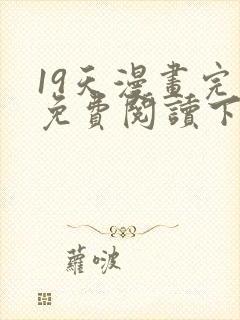 19天漫畫完
免費閱讀下
蘿啵